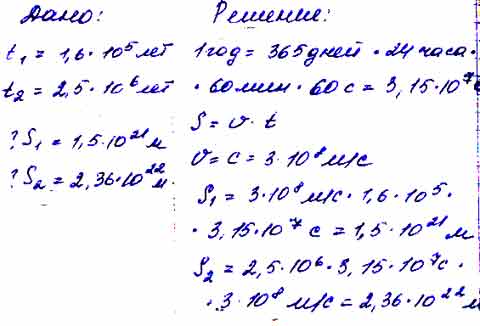 Дано:
t₁ = 1,6·10⁵ лет
t₂ = 2,5·10⁶ лет
? S₁ = 1,5·10²¹ м
? S₂ = 2,36·10²² м.
Решение:
1 год = 365 дней · 24 часа ·
· 60 мин · 60 с = 3,15·10⁷ с
S = υ · t
υ = c = 3 · 10⁸ м/с
S₁ = 3·10⁸ м/с · 1,6 · 10⁵ ·
· 3,15·10⁷ с = 1,5·10²¹ м
S₂ = 2,5·10⁶ · 3,15·10⁷ с ·
· 3 · 10⁸ м/с = 2,36·10²² м